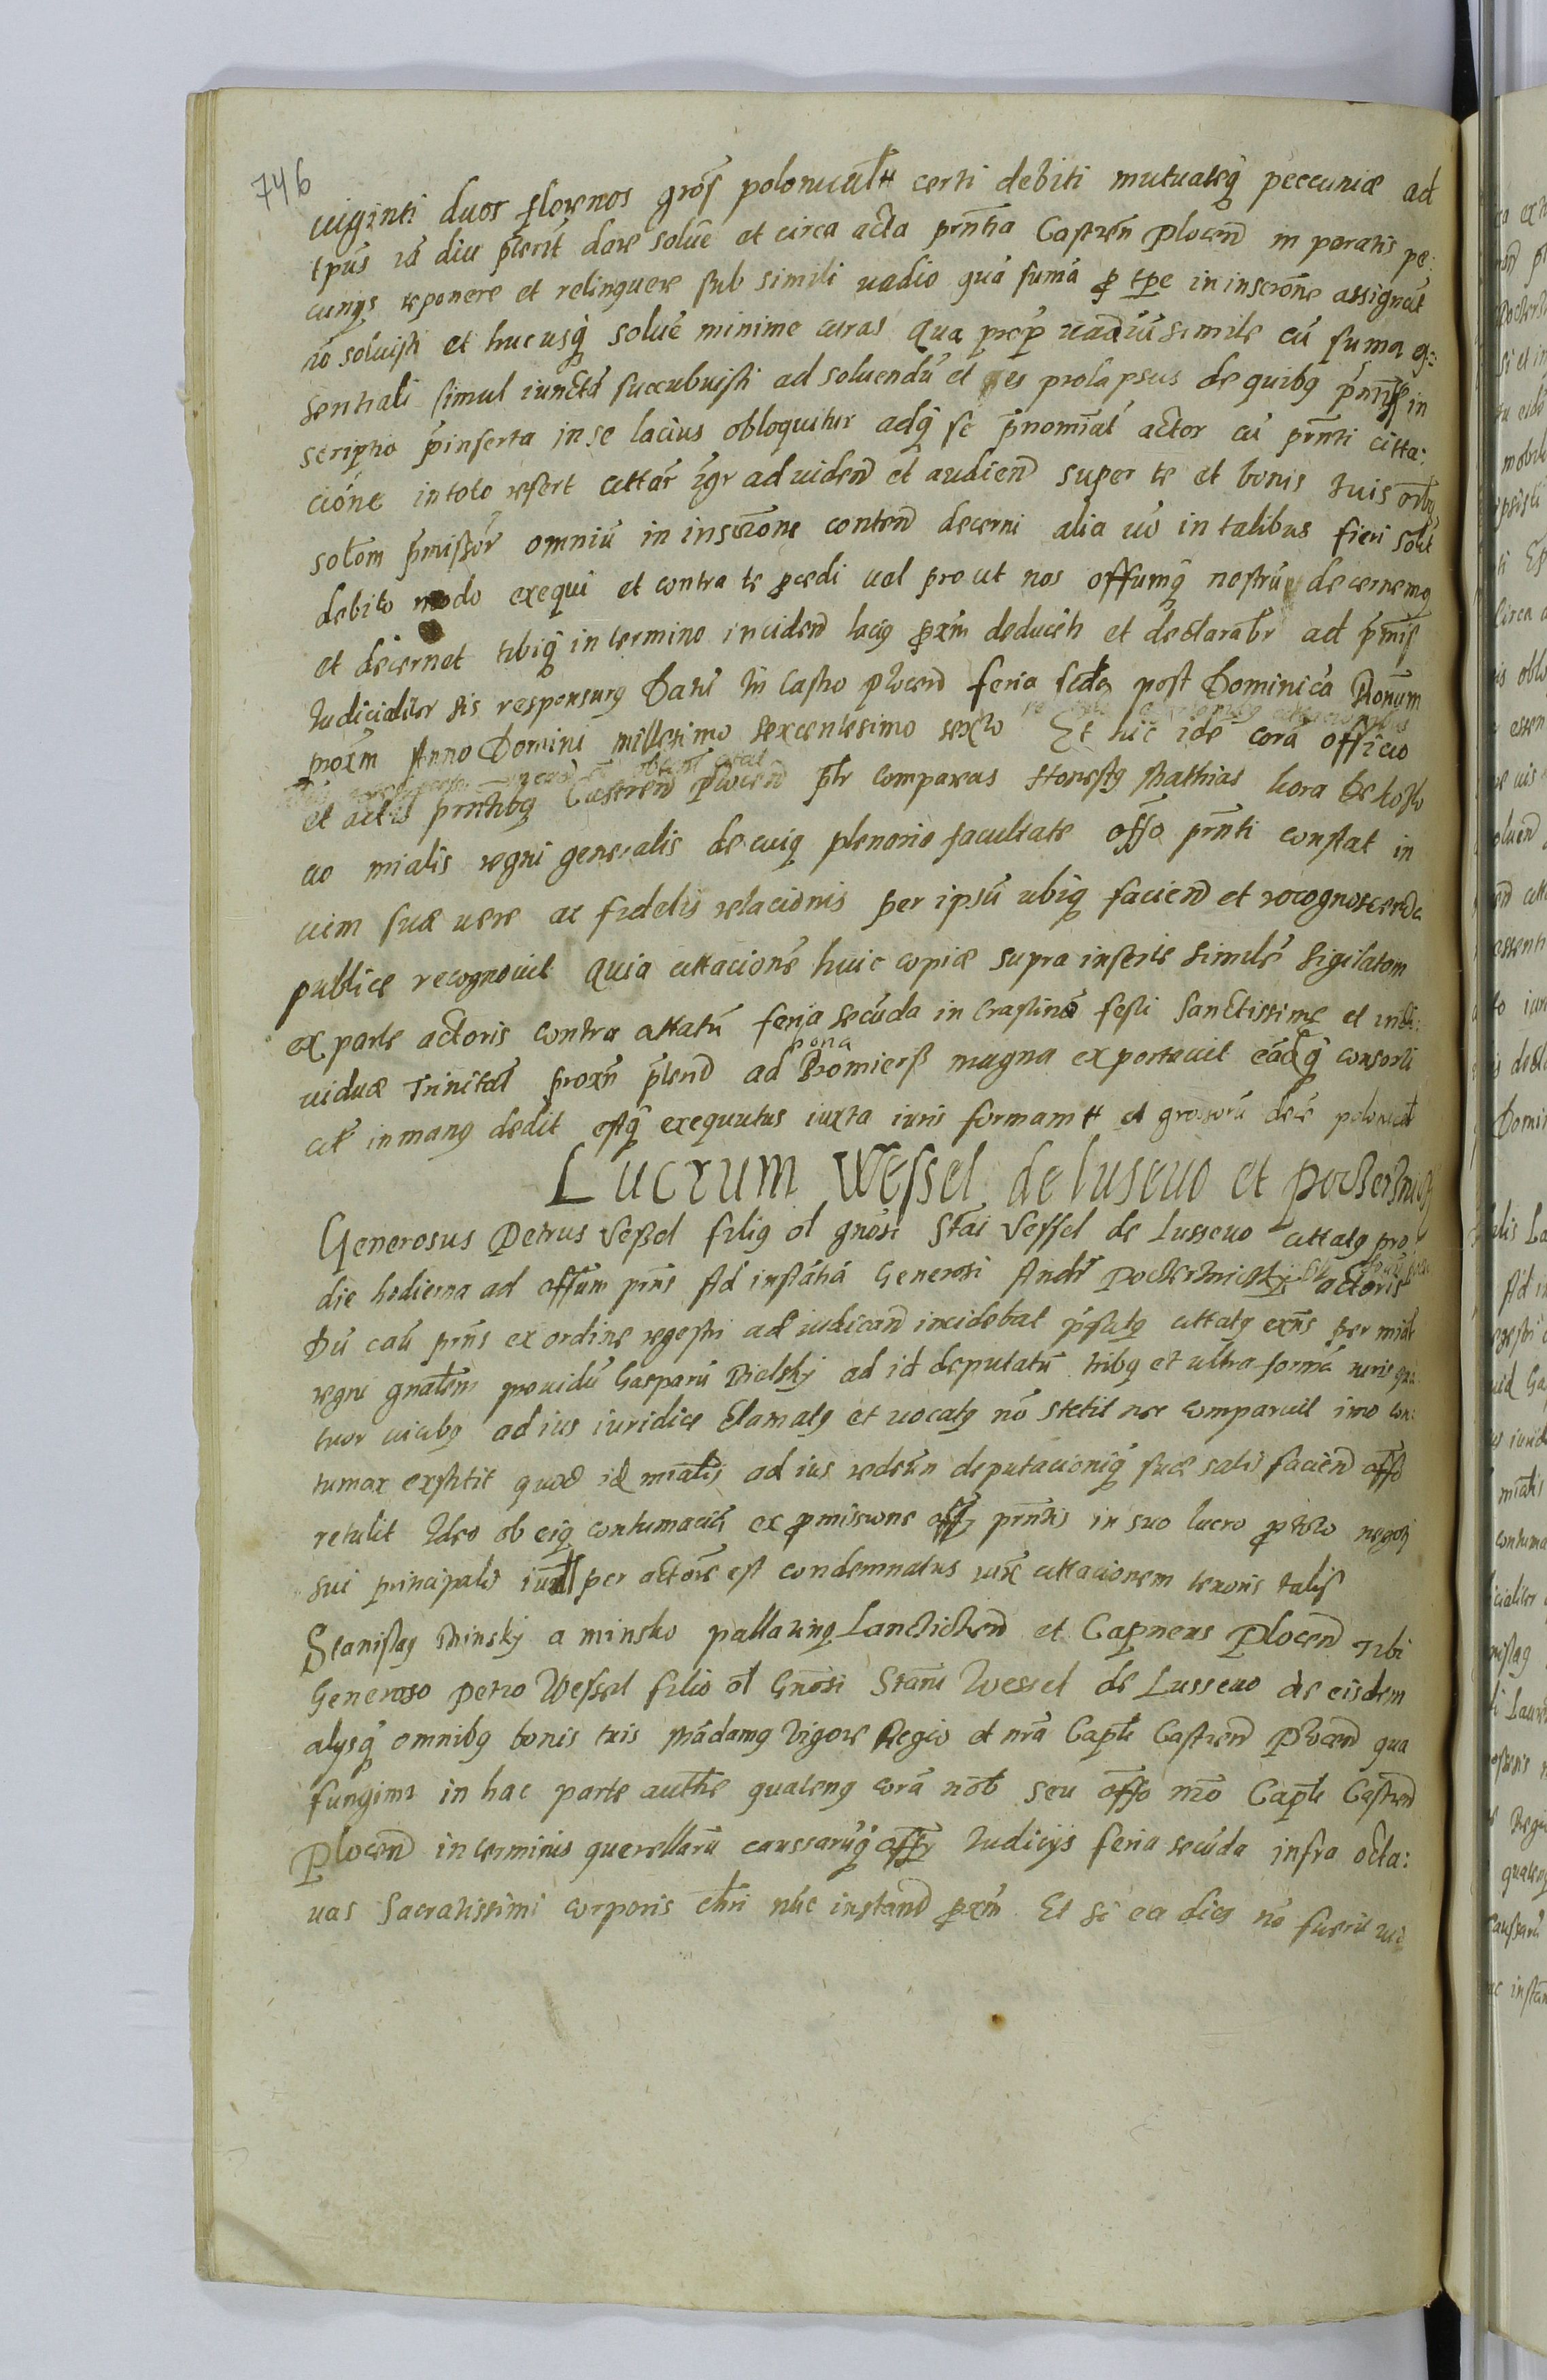 746
viginti duos florenos gros polonical # certi debiti mutuateq peccuniæ ad
tpus iã diu pterit dare solue et circa acta prntia Castren Plocen in paratis pe:
cunys reponere et relinquere sub simili vadio quã sumã p tpe in inscrone assignat
nõ solvisti et hucusq solue minime curas Qua prop vadiũ simile cũ suma es:
sentiali simul iuncta succubuisti ad soluendũ et es prolapsus de quibq in
scriptio pinserta in se lacius obloquitur adq se pnominat actor cũ prnti citta:
cione in toto refert cittar igr ad viden et audien super te et bonis tuis orbq
solom pmissor omniũ in inscrone conten decerni alia vo in talibus fieri solit
debito modo exequi et contra te pcedi val prout nos offumq nostrũ decernemq
et decernet tibiq in termino inciden laciq pxm deduceti et declarabr ad pmis
Iudicialiter sis responsurq Datũ In Castro Plocen feria scda post Dominicã Bonum
proxm Anno Domini millesimo sexcentesimo sexto Et hic ide corã officio
et actis prntibq Castren Plocen ptr comparens Honestq Mathias kora de kozlo
vo mialis regni generalis de cuiq plenario facultate offo prnti constat in
vim suæ vere ac fidelis relacionis per ipsũ ubiq facien et recognoscenda
publice recognovit Quia cittacionẽ huic copiæ supra inserte similẽ sigilatam
ex parte actoris contra cittatũ feria secũda in Crastino festi Sanctissime et indi:
viduæ Trinitat proxm pterit ad bona Bromierß magna exportavit eãdq consorti
cit in manq dedit estq exequutus iuxta iuris formam # et grossorũ decẽ polonical
Lucrum Wessel de lusevo et
Generosus Petrus Veßel filiq ol gnosi Stai Vessel de Lussevo cittatq pro
die hodierna ad offum prns Ad instãtiã Generosi Andr actoris
Dũ caũ prns ex ordine regestri ad iudican incidebat cittatq exns per mide
regni gnalem providũ Gasparũ Bielsky ad id deputatũ tribq et ultra formã iuris qua
tuor vicibq ad ius iuridice clamatq et vocatq nõ stetit nec comparuit imo con:
tumax exstitit quod id mialis ad ius rediẽn deputacioniq suæ satis facien offo
retulit Ideo ob eiq contumaciã ex pmissione offy prntis in suo lucro pto negoty
sui principalis per actorẽ est condemnatus iux cittacionem tenoris talis
Stanislaq Minsky a minsko pallatinq Lancicien et Capneus Plocen Tibi
Generoso Petro Wessel filio ol Gnosi Stani Wessel de Lussevo de eisdem
alysq omnibq bonis tuis Mãdamq Vigore Regio et nra Capli Castren Plocen qua
fungimr in hac parte authe quatenq corã nob seu offo nro Capli Castren
Plocen in terminis querellarũ caussarũq offy Iudicijs feria secũda infra octa:
vas Sacratissimi corporis chri nũc instan pxm Et si ea dies nõ fuerit